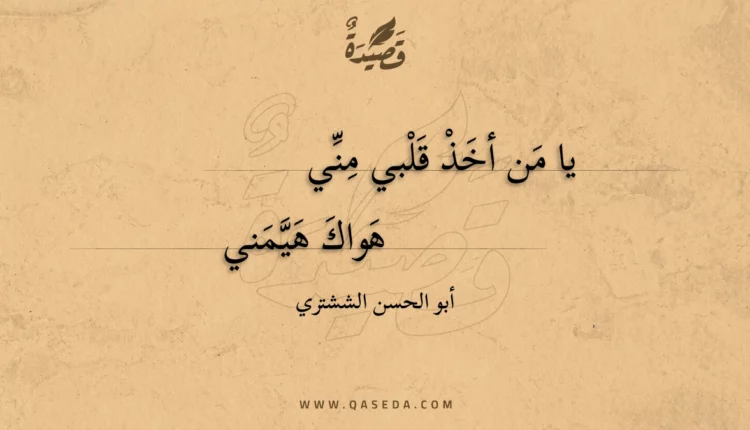 قَصِيدَةٌ
يا مَن أخَذْ قَلْبي مِنِّي
هَواكَ هَيَّمَني
أبو الحسن الششتري
WWW.QASEDA.COM